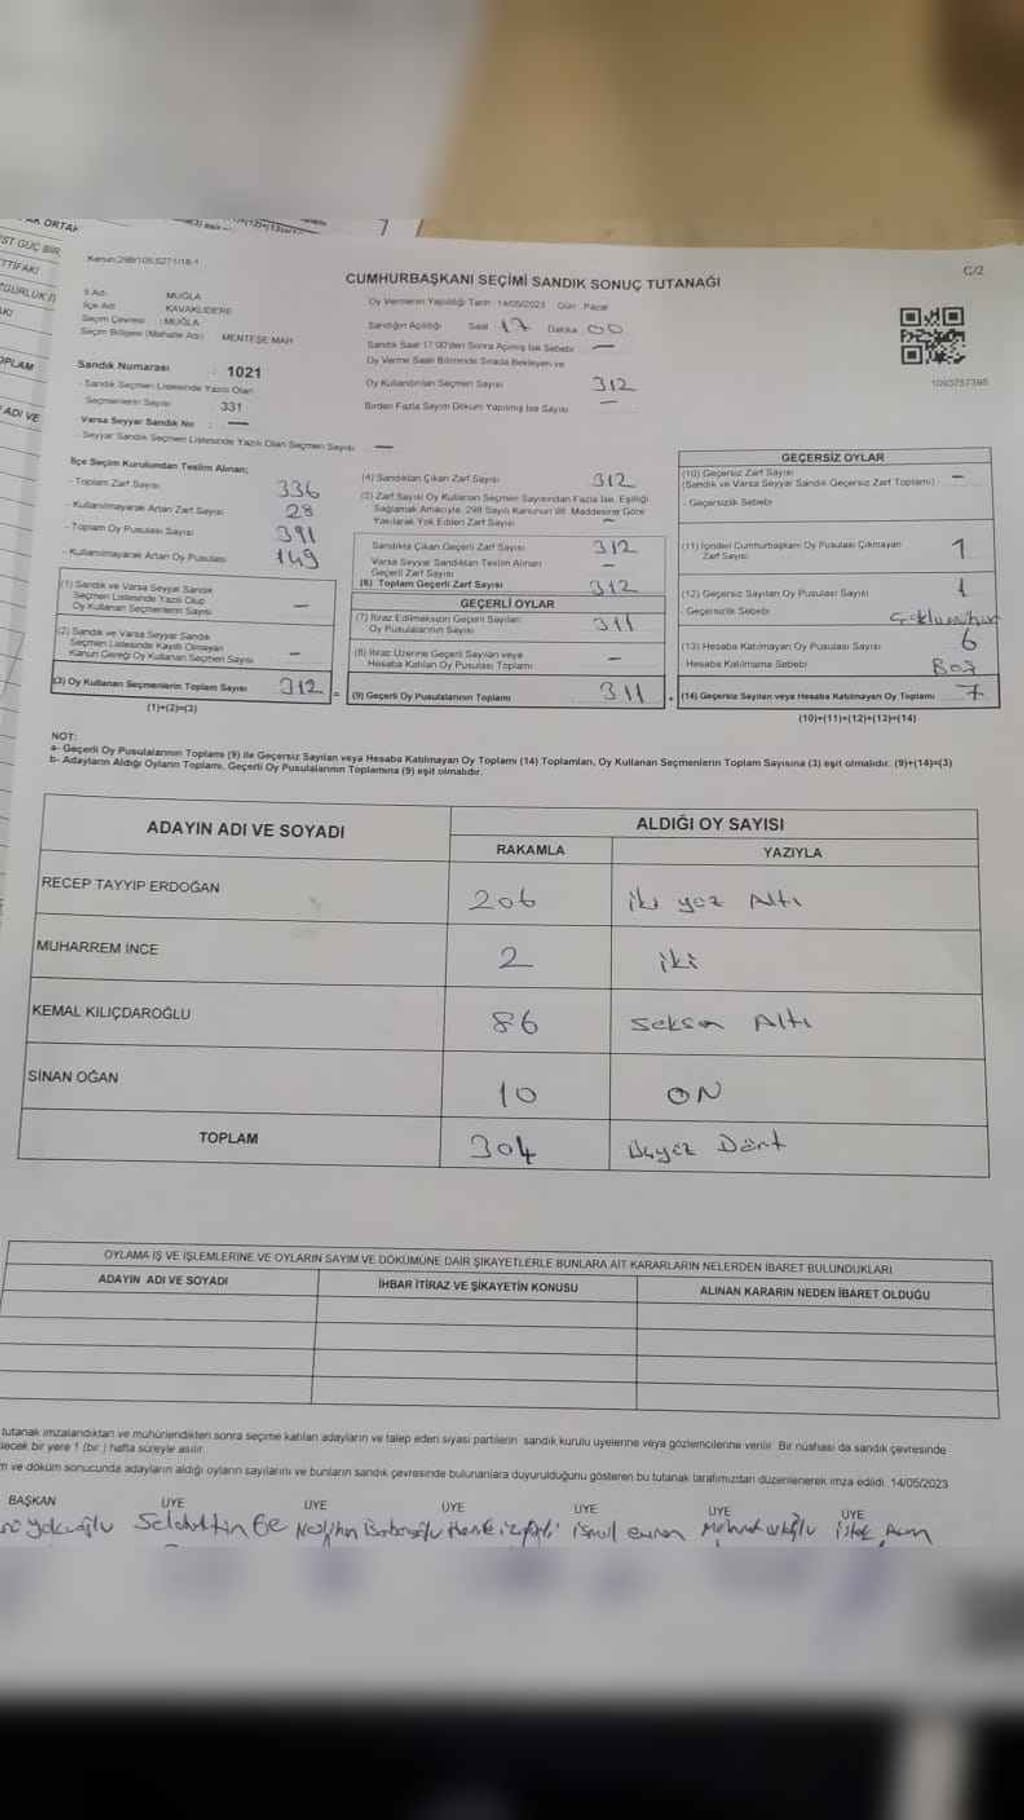 AK ORTAK
ST GÜÇ BİR
TTİFAKI
ZGÜRLÜK
OPLAM
ADI VE
C/2
CUMHURBAŞKANI SEÇİMİ SANDIK SONUÇ TUTANAĞI
İl Adı : MUĞLA
İlçe Adı : KAVAKLIDERE
Seçim Çevresi : MUĞLA
Seçim Bölgesi (Mahalle Adı) : MENTEŞE MAH
Sandık Numarası : 1021
Sandık Seçmen Listesinde Yazılı Olan
Seçmenlerin Sayısı : 331
Varsa Seyyar Sandık No : —
Seyyar Sandık Seçmen Listesinde Yazılı Olan Seçmen Sayısı : —
Oy Vermenin Yapıldığı Tarih : 14/05/2023 Gün : Pazar
Sandığın Açıldığı Saat : 17 Dakika : 00
Sandık Saat 17.00'den Sonra Açılmış İse Sebebi : —
Oy Verme Saati Bitiminde Sırada Bekleyen ve
Oy Kullandırılan Seçmen Sayısı : 312
Birden Fazla Sayım Döküm Yapılmış İse Sayısı : —
1093757395
İlçe Seçim Kurulundan Teslim Alınan;
- Toplam Zarf Sayısı 336
- Kullanılmayarak Artan Zarf Sayısı 28
- Toplam Oy Pusulası Sayısı 391
- Kullanılmayarak Artan Oy Pusulası 149
(1) Sandık ve Varsa Seyyar Sandık
Seçmen Listesinde Yazılı Olup
Oy Kullanan Seçmenlerin Sayısı —
(2) Sandık ve Varsa Seyyar Sandık
Seçmen Listesinde Kayıtlı Olmayan
Kanun Gereği Oy Kullanan Seçmen Sayısı —
(3) Oy Kullanan Seçmenlerin Toplam Sayısı 312 =
(1)+(2)=(3)
(4) Sandıktan Çıkan Zarf Sayısı 312
(5) Zarf Sayısı Oy Kullanan Seçmen Sayısından Fazla İse, Eşitliği
Sağlamak Amacıyla, 298 Sayılı Kanunun 98. Maddesine Göre
Yakılarak Yok Edilen Zarf Sayısı —
Sandıkta Çıkan Geçerli Zarf Sayısı 312
Varsa Seyyar Sandıktan Teslim Alınan
Geçerli Zarf Sayısı —
(6) Toplam Geçerli Zarf Sayısı 312
GEÇERLİ OYLAR
(7) İtiraz Edilmeksizin Geçerli Sayılan
Oy Pusulalarının Sayısı 311
(8) İtiraz Üzerine Geçerli Sayılan veya
Hesaba Katılan Oy Pusulası Toplamı —
(9) Geçerli Oy Pusulalarının Toplamı 311 +
GEÇERSİZ OYLAR
(10) Geçersiz Zarf Sayısı
(Sandık ve Varsa Seyyar Sandık Geçersiz Zarf Toplamı) : —
Geçersizlik Sebebi :
(11) İçinden Cumhurbaşkanı Oy Pusulası Çıkmayan
Zarf Sayısı 1
(12) Geçersiz Sayılan Oy Pusulası Sayısı 1
Geçersizlik Sebebi
(13) Hesaba Katılmayan Oy Pusulası Sayısı 6
Hesaba Katılmama Sebebi Boş
(14) Geçersiz Sayılan veya Hesaba Katılmayan Oy Toplamı 7
(10)+(11)+(12)+(13)=(14)
NOT:
a- Geçerli Oy Pusulalarının Toplamı (9) ile Geçersiz Sayılan veya Hesaba Katılmayan Oy Toplamı (14) Toplamları, Oy Kullanan Seçmenlerin Toplam Sayısına (3) eşit olmalıdır. (9)+(14)=(3)
b- Adayların Aldığı Oyların Toplamı, Geçerli Oy Pusulalarının Toplamına (9) eşit olmalıdır.
ADAYIN ADI VE SOYADI
ALDIĞI OY SAYISI
RAKAMLA YAZIYLA
RECEP TAYYİP ERDOĞAN 206 iki yüz Altı
MUHARREM İNCE 2 iki
KEMAL KILIÇDAROĞLU 86 Seksen Altı
SİNAN OĞAN 10 ON
TOPLAM 304 Üçyüz Dört
OYLAMA İŞ VE İŞLEMLERİNE VE OYLARIN SAYIM VE DÖKÜMÜNE DAİR ŞİKAYETLERLE BUNLARA AİT KARARLARIN NELERDEN İBARET BULUNDUKLARI
ADAYIN ADI VE SOYADI İHBAR İTİRAZ VE ŞİKAYETİN KONUSU ALINAN KARARIN NEDEN İBARET OLDUĞU
tutanak imzalandıktan ve mühürlendikten sonra seçime katılan adayların ve talep eden siyasi partilerin sandık kurulu üyelerine veya gözlemcilerine verilir. Bir nüshası da sandık çevresinde
lecek bir yere 1 (bir) hafta süreyle asılır.
m ve döküm sonucunda adayların aldığı oyların sayılarını ve bunların sandık çevresinde bulunanlara duyurulduğunu gösteren bu tutanak tarafımızdan düzenlenerek imza edildi. 14/05/2023
BAŞKAN ÜYE ÜYE ÜYE ÜYE ÜYE ÜYE
Selahattin